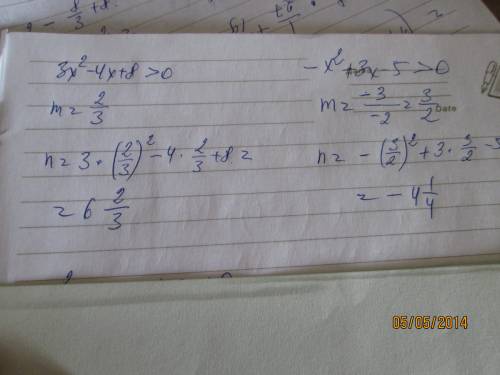 3x²-4x+8>0
m=2/3
n=3·(2/3)²-4·2/3+8=
=6 2/3
-x²+3x-5>0
m=-3/-2=3/2
Date
n=-(3/2)²+3·3/2-5
=-4 1/4
05/05/2014